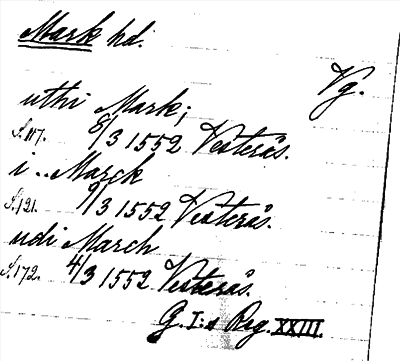 Mark hd.
Vg.
uthi Mark;
S.117. 8/3 1552 Vesterås.
i .. Marck
S.121. 9/3 1552 Vesterås.
udi March
S.172. 4/3 1552 Vesterås.
G. I:s Reg. XXIII.